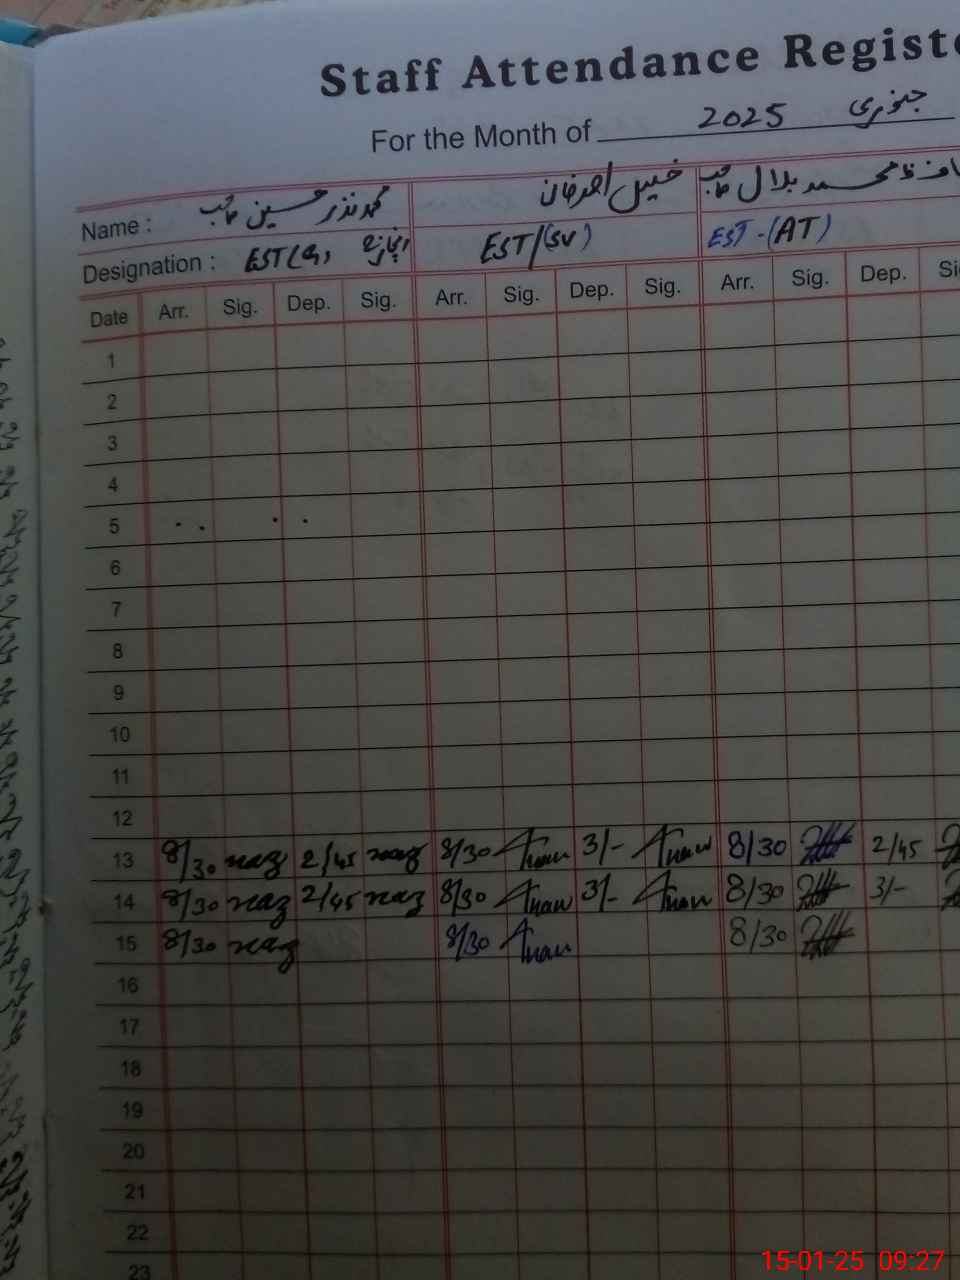 Staff Attendance Registe
For the Month of 2025 جنوری
Name : محمد نذر حسین صاحب احمد خان محمد بلال صاحب
Designation : EST انچارج EST/(SV) EST-(AT)
Date Arr. Sig. Dep. Sig. Arr. Sig. Dep. Sig. Arr. Sig. Dep. Si
1
2
3
4
5
6
7
8
9
10
11
12
13 8/30 naz 2/45 naz 8/30 3/- 8/30 2/45
14 8/30 naz 2/45 naz 8/30 3/- 8/30 3/-
15 8/30 naz 8/30 8/30
16
17
18
19
20
21
22
23
15-01-25 09:27